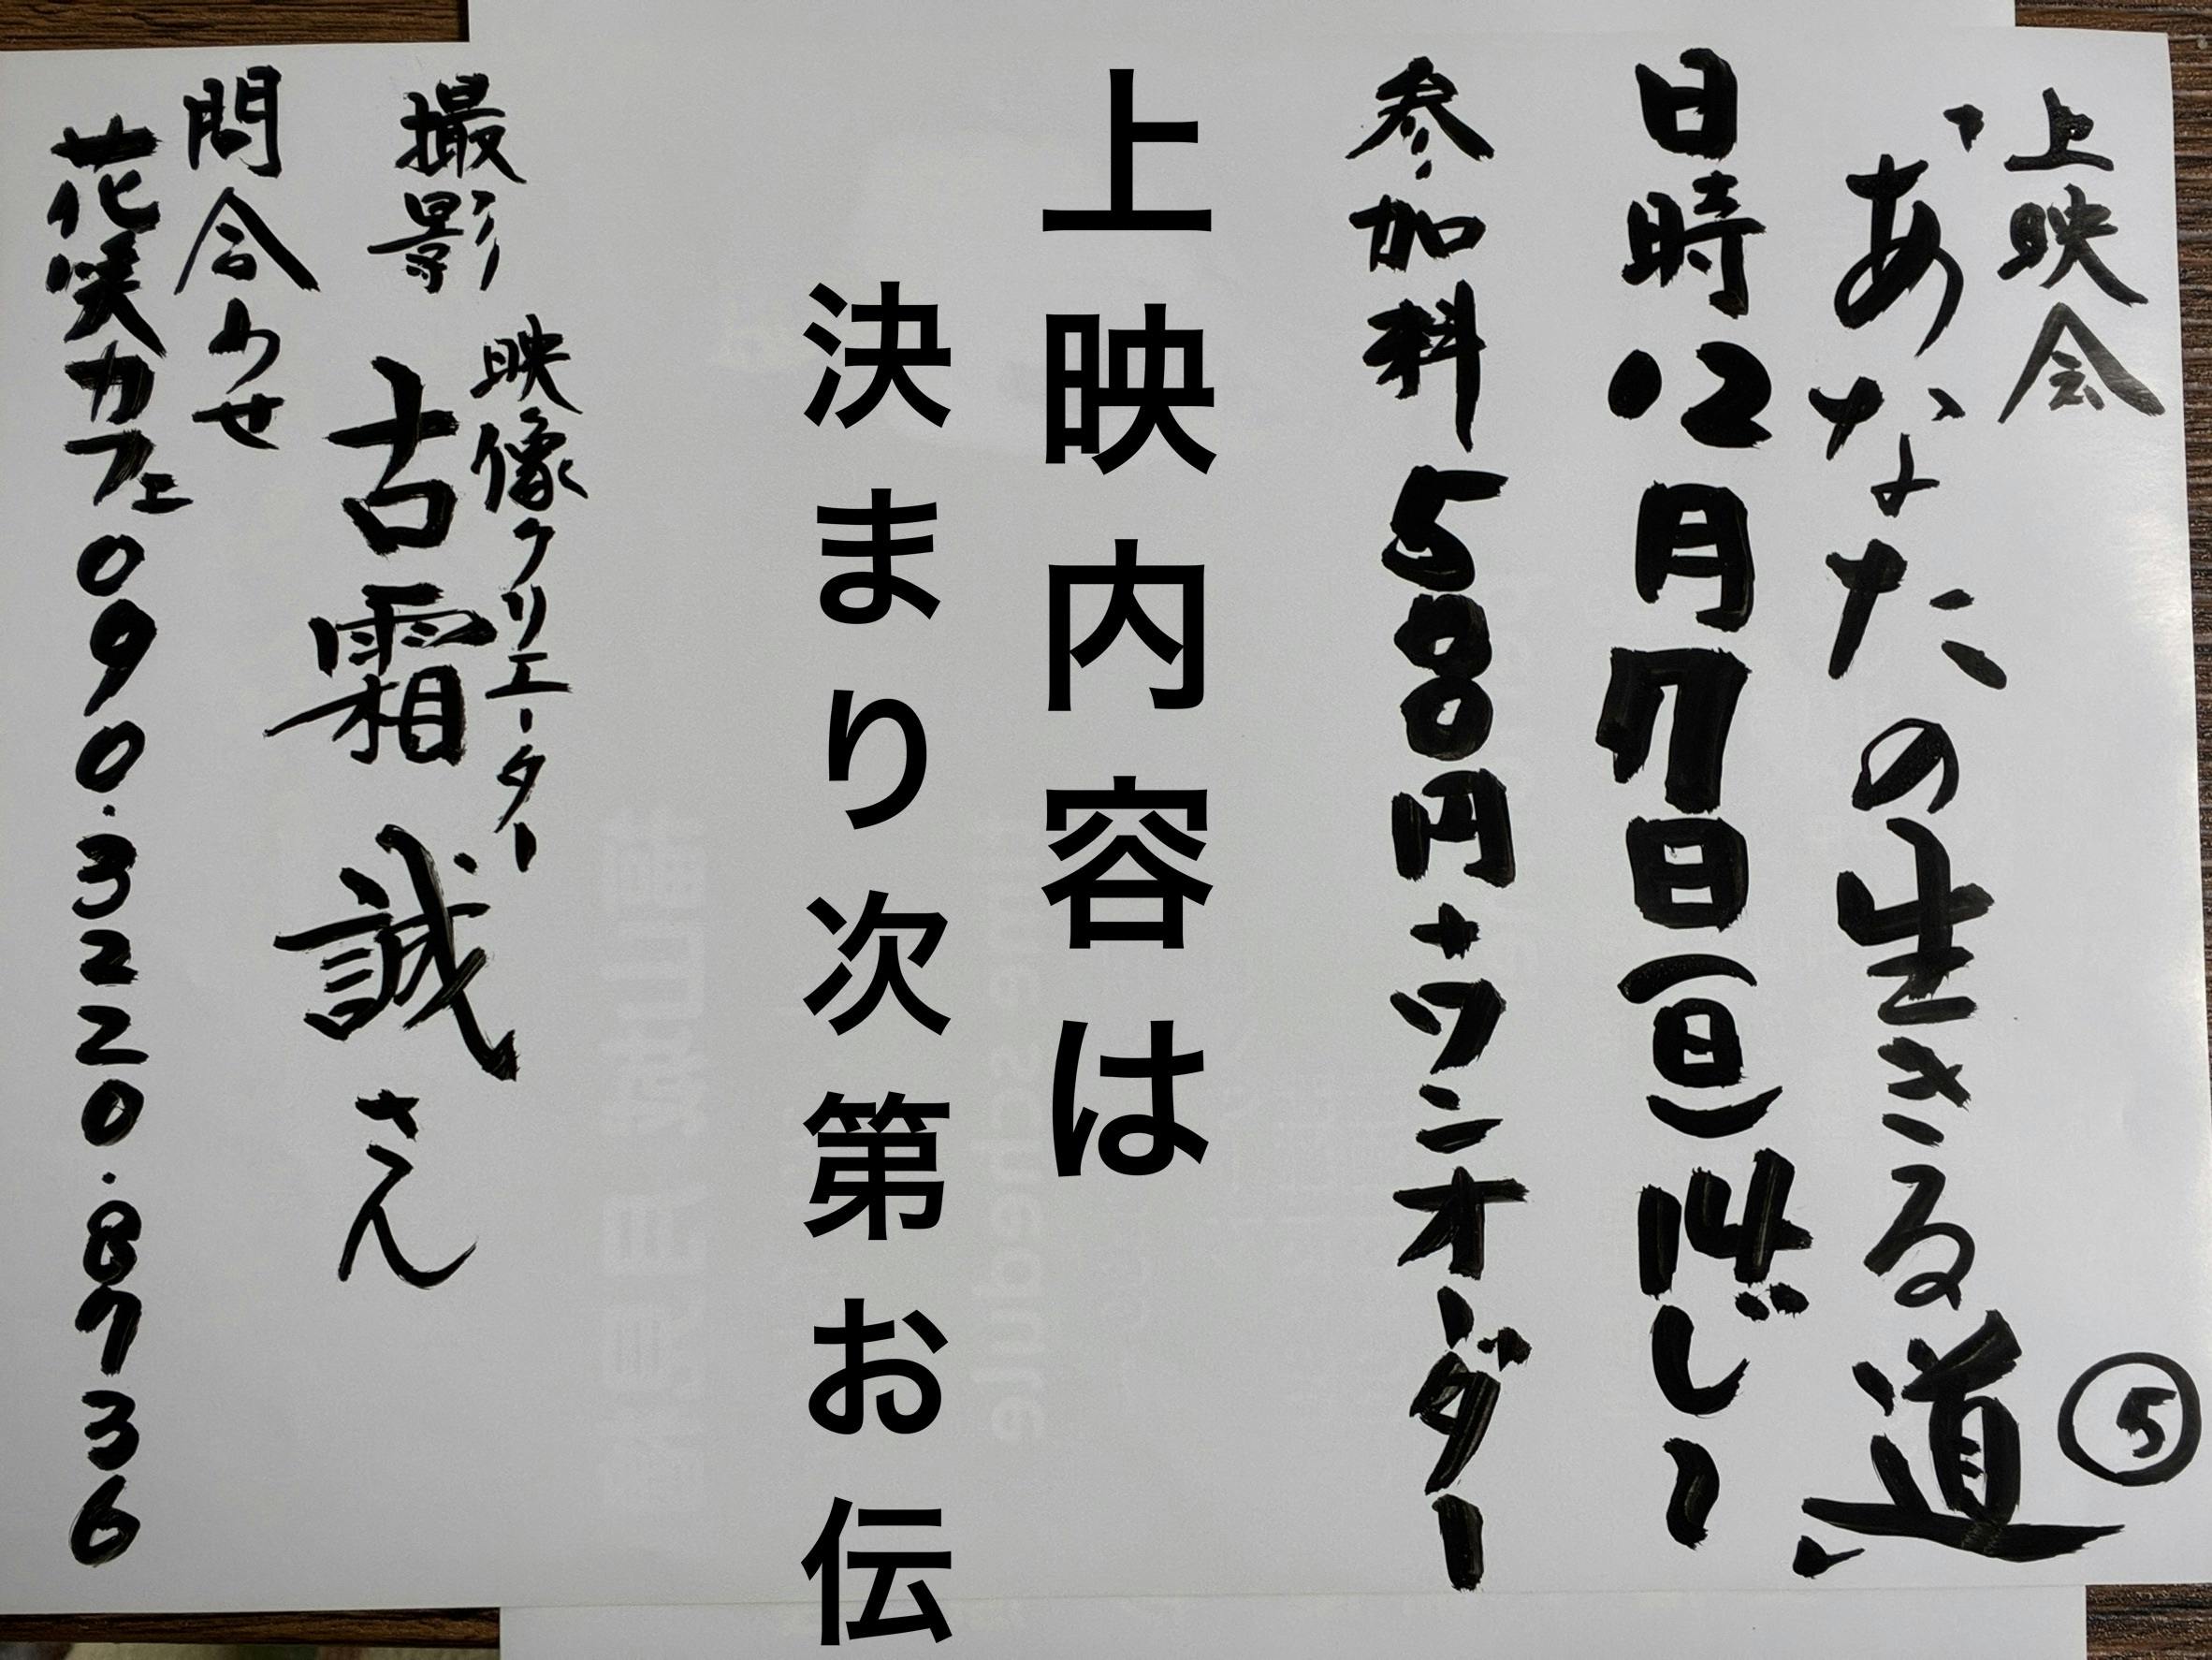 上映会
"あなたの生きる道" ⑤
日時12月7日(日)14時〜
参加料500円+ワンオーダー
上映内容は
決まり次第お伝
撮影
映像クリエーター
古霜 誠さん
問合わせ
花咲カフェ090.3220.8736